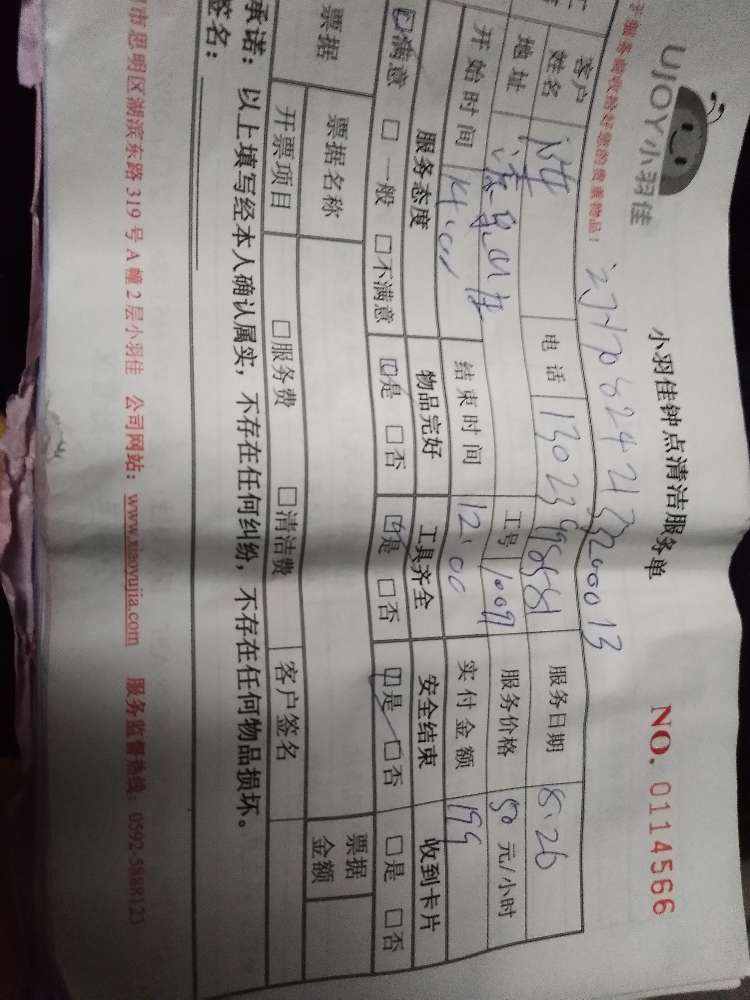 UJOY小羽佳
小羽佳钟点清洁服务单
NO. 0114566
服务前收拾好您的贵重物品!
客户姓名 电话 服务日期 8.26
地址 工号 1009 服务价格 50 元/小时
开始时间 结束时间 12:00 实付金额 199
服务态度 物品完好 工具齐全 安全结束 收到卡片
☑满意 □一般 □不满意 ☑是 □否 ☑是 □否 ☑是 □否 □是 □否
票据 票据名称 票据金额
开票项目 □服务费 □清洁费 客户签名
承诺:以上填写经本人确认属实,不存在任何纠纷,不存在任何物品损坏。
签名:
市思明区湖滨东路 319 号 A 幢 2 层小羽佳 公司网站:www.xiaoyujia.com 服务监督热线:0592-5888123